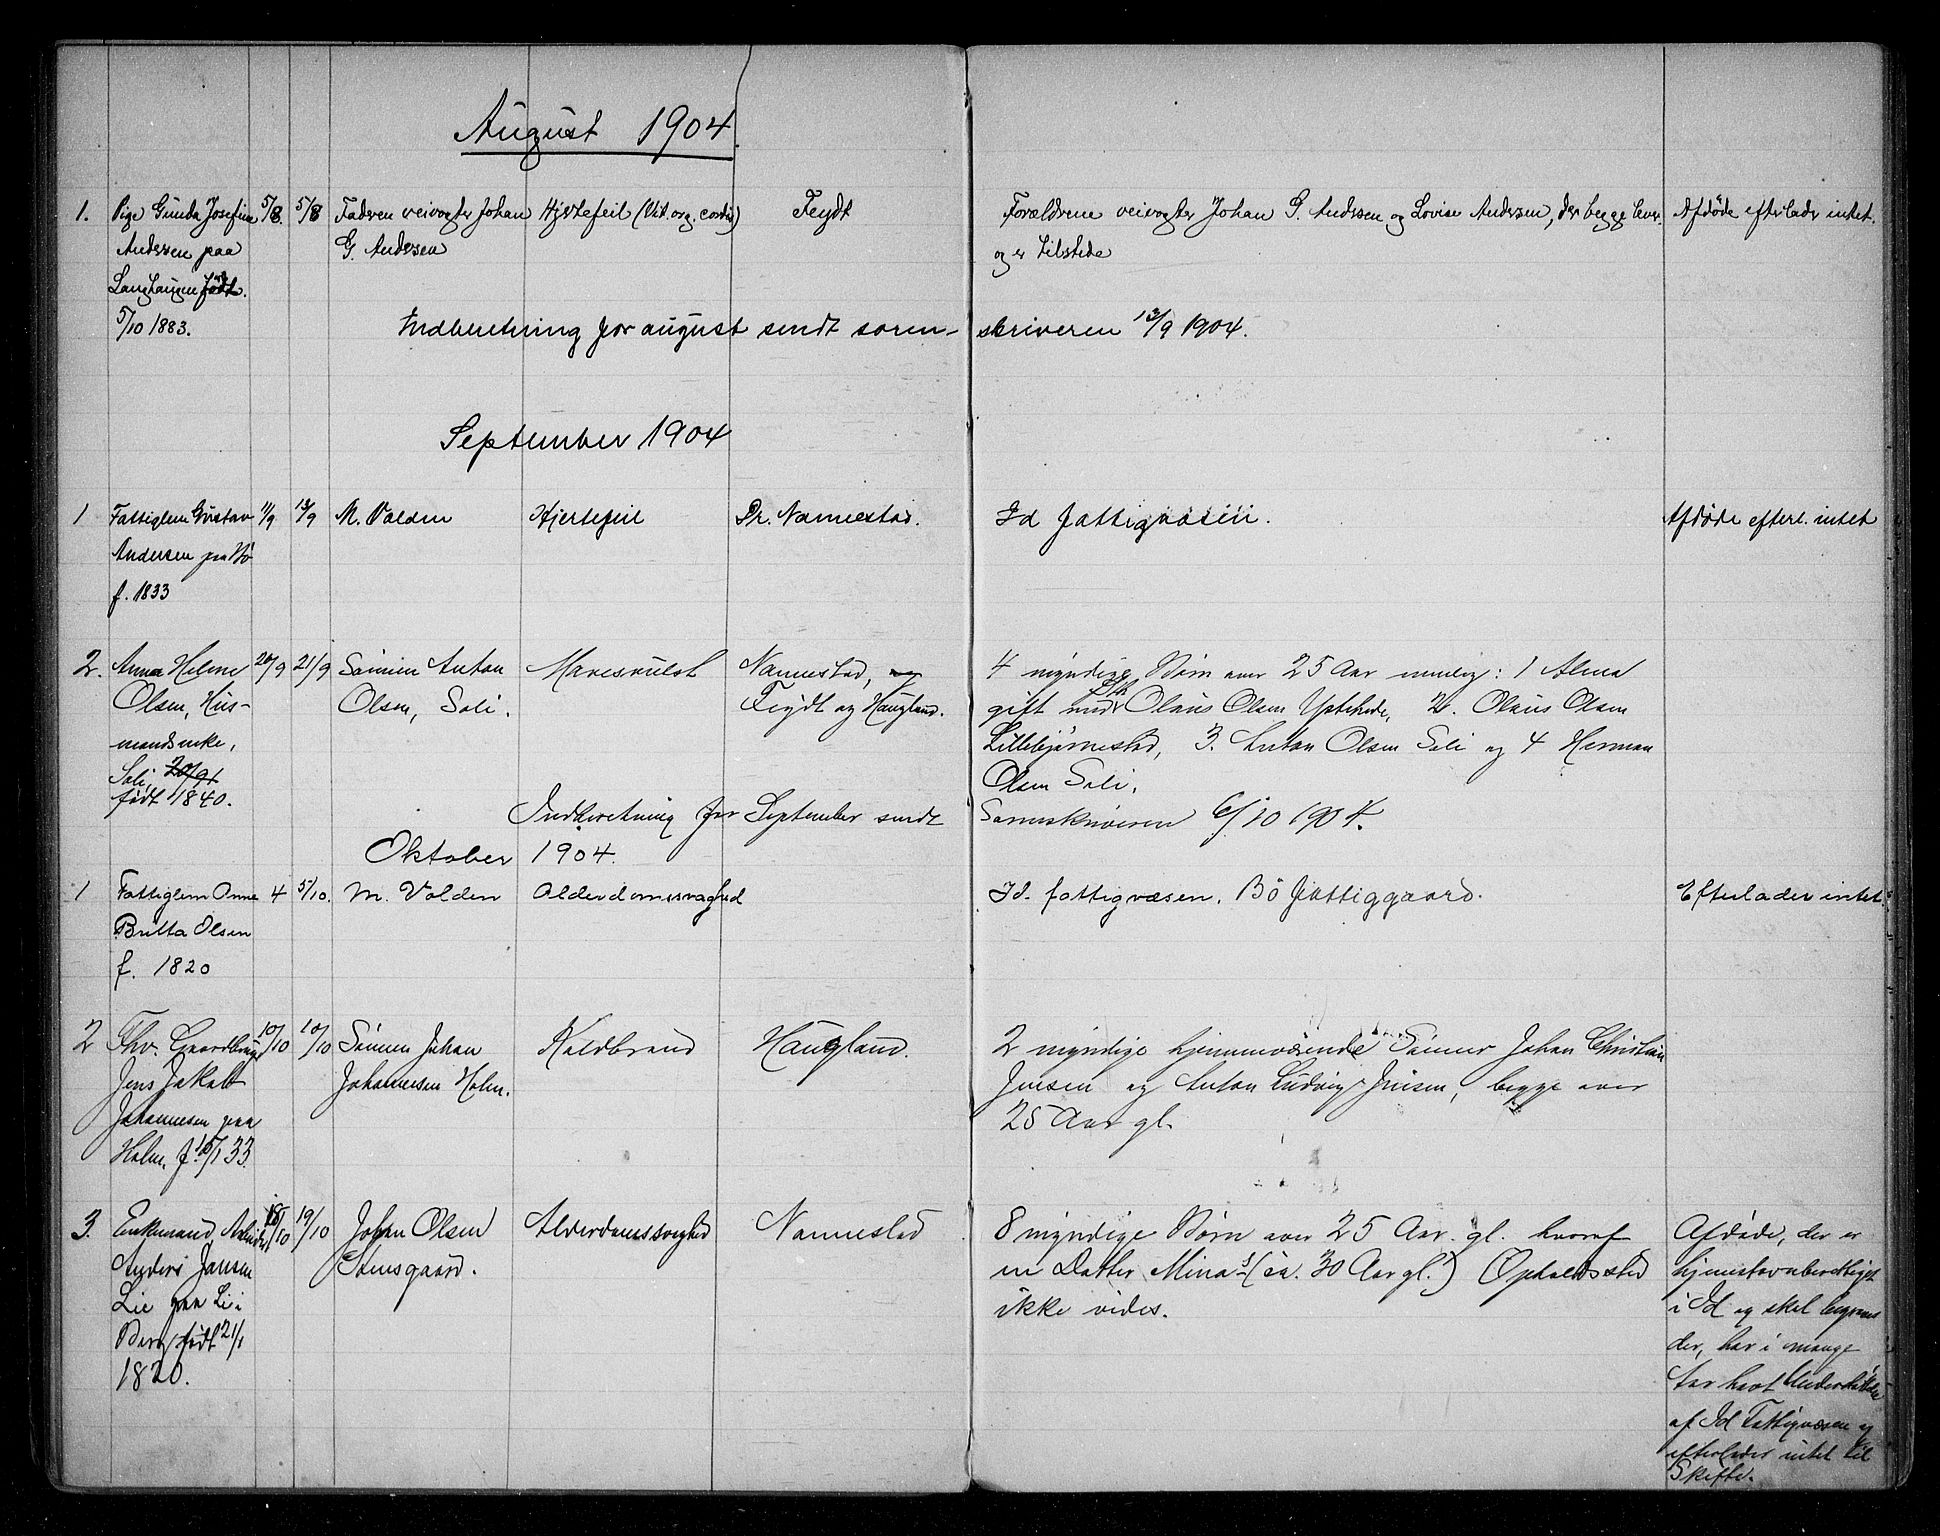 August 1904
1. Pige Gunda Josefine 5/8. 5/8 Faderen veivogter Johan Hjertefeil (Vit. org. cordis) Feydt Forældrene veivogter Johan G. Andersen og Lovise Andersen, der begge lever Afdøde efterlader intet.
Andersen paa G. Andersen og er tilstede
Langhaugen født.
5/10 1883. Indberetning for august sendt soren- skriveren 13/9 1904.
September 1904
1 Fattiglem Gustav 11/9 13/9 M. Volden Hjertefeil Dr. Nannestad. Id fattigvæsen. Afdøde efterl. intet
Andersen paa Bö
f. 1833
2. Anna Helene 20/9 21/9 Sönnen Anton Mavesvulst Nannestad, 4 myndige Börn over 25 Aar nemlig: 1 Alma
Olsen, Hus- Olsen, Soli. Feydt og Haugland. gift med Olaus Olsen 2. Olaus Olsen
mandsenke, Lillebjørnestad, 3. Anton Olsen Soli og 4 Herman
Soli, 20/9 Olsen Soli.
født 1840. Indberetning for September sendt Sorenskriveren 6/10 1904.
Oktober 1904.
1 Fattiglem Anne 4 5/10. M. Volden Alderdomssvaghed Id. fattigvæsen. Bö fattiggaard. Efterlader intet.
Britta Olsen
f. 1820
2 Fhv. Gaardbruger 10/10 10/10 Sönnen Johan Koldbrand Haugland. 2 myndige hjemmeværende Sönner Johan Christian
Jens Jakob Johannesen Holm. Jensen og Anton Ludvig Jensen, begge over
Johannesen paa 25 Aar gl.
Holm. f. 10/1 33.
3. Enkemand, Arbeider 18/10 19/10 Johan Olsen Alderdomssvaghed Nannestad 8 myndige Börn over 25 Aar gl. hvoraf Afdøde, der er
Anders Jansen Stensgaard. en Datter Mina's (ca. 30 Aar gl.) Opholdssted hjemstavnsberettiget
Lie paa Lie i ikke vides. i Id og skal begraves
Berg født 21/1 der, har i mange
1820. Aar havt Understøttelse
af Id Fattigvæsen og
efterlader intet til
Skifte.